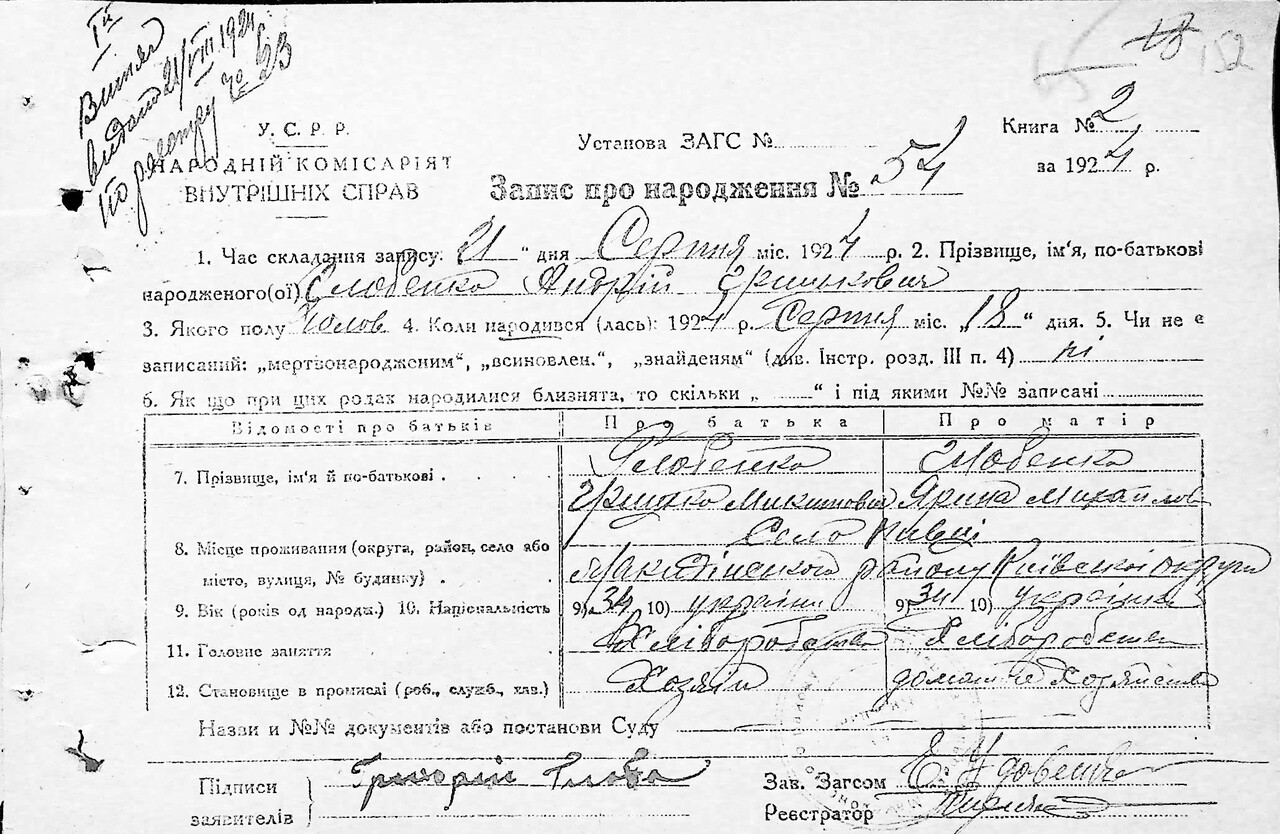 Витяг
видано 21/VIII 1924
по реєстру № 23
152
У. С. Р. Р.
НАРОДНІЙ КОМІСАРІЯТ
ВНУТРІШНІХ СПРАВ
Установа ЗАГС №
Книга № 2
за 1924 р.
Запис про народження № 54
1. Час складання запису: 21 " дня Серпня міс. 1924 р. 2. Прізвище, ім'я, по-батькові
народженого(ої) Словенко Андрій Грицькович
3. Якого полу Чолов 4. Коли народився (лась): 1924 р. Серпня міс. „18" дня. 5. Чи не є
записаний: „мертвонародженим", „всиновлен.", „знайденям" (див. Інстр. розд. III п. 4) ні
6. Як що при цих родах народилися близнята, то скільки „ " і під якими №№ записані
Відомості про батьків Про батька Про матір
7. Прізвище, ім'я й по-батькові . Словенко Словенко
Грицько Микитович Ярина Михайлов
Село
8. Місце проживання (округа, район, село або
місто, вулиця, № будинку) . Макарівського району Київської округи
9. Вік (років од народж.) 10. Національність 9) 34 10) україн 9) 34 10) українка
11. Головне заняття Хліборобство Хліборобство
12. Становище в промислі (роб., служб., хаз.) Хозяїн домашнє хозяйство
Назви и №№ документів або постанови Суду
Підписи
заявителів
Григорій
Зав. Загсом
Реєстратор